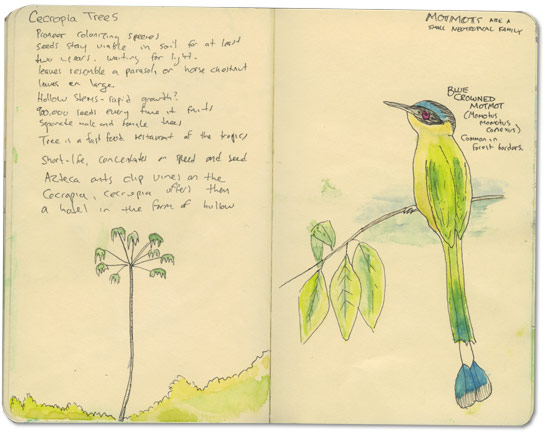 Cecropia Trees
Pioneer colonizing species
Seeds stay viable in soil for at least
two years. waiting for light.
leaves resemble a parasol or horse chestnut
leaves en large.
Hollow Stems - rapid growth?
900,000 seeds every time it fruits
Separate male and female trees
Tree is a fast food restaurant of the tropics
Short-life, concentrates on speed and seed
Azteca ants clip vines on the
Cecropia, cecropia offers them
a hotel in the form of hollow
MOTMOTS ARE A
SMALL NEOTROPICAL FAMILY
BLUE
CROWNED
MOTMOT
(Momotus
Momotus
)
Common in
forest borders.